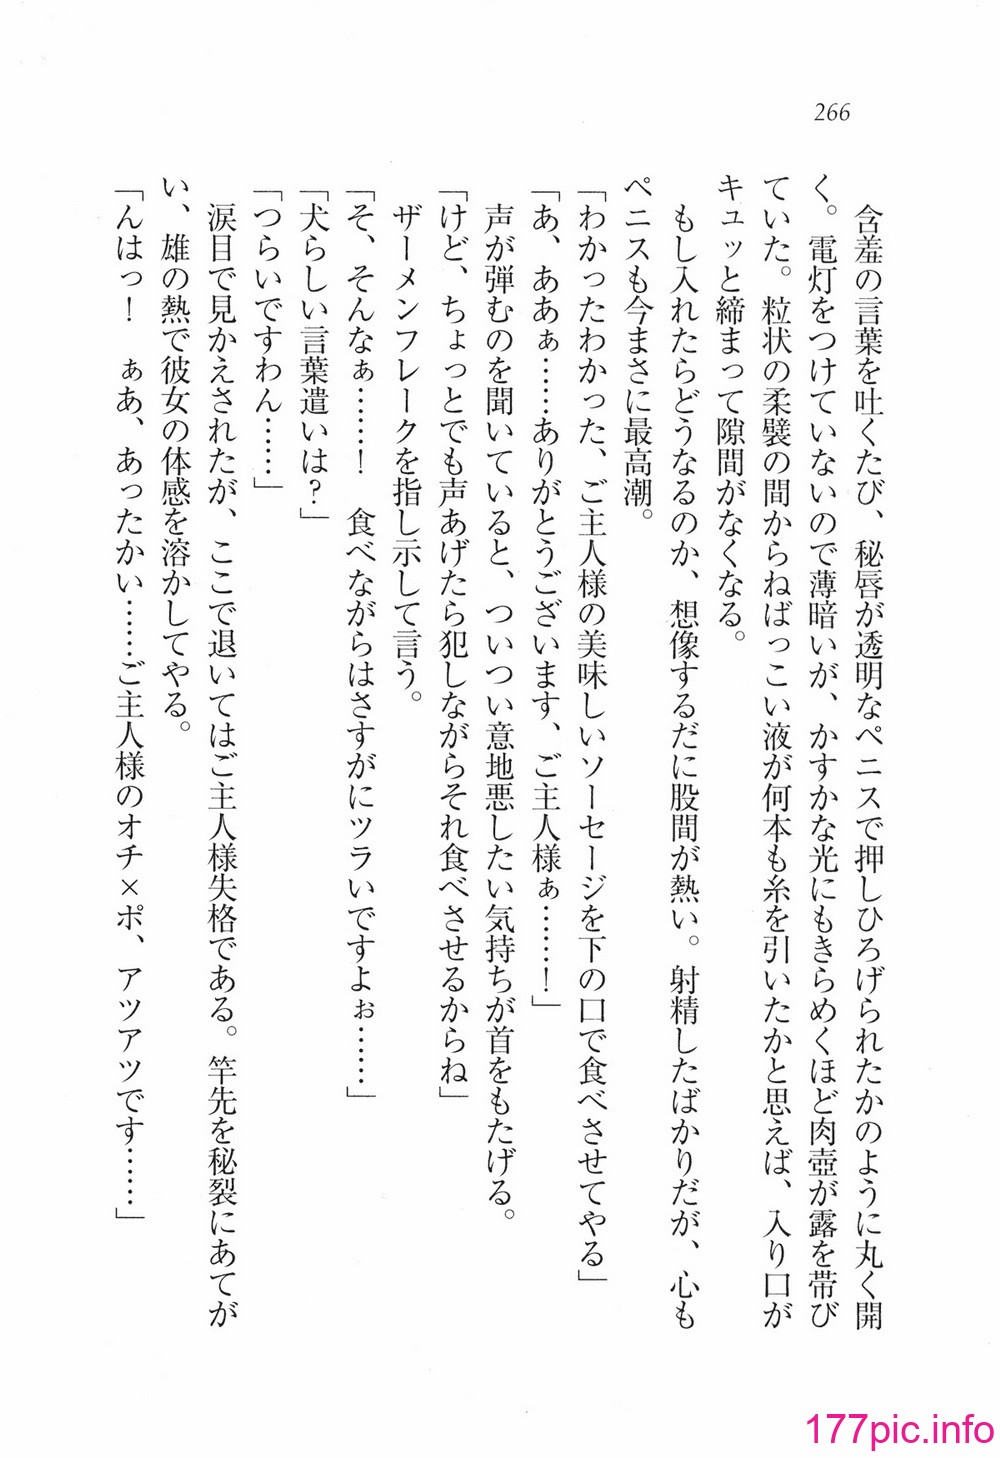 266
含羞の言葉を吐くたび、秘唇が透明なペニスで押しひろげられたかのように丸く開
く。電灯をつけていないので薄暗いが、かすかな光にもきらめくほど肉壺が露を帯び
ていた。粒状の柔襞の間からねばっこい液が何本も糸を引いたかと思えば、入り口が
キュッと締まって隙間がなくなる。
もし入れたらどうなるのか、想像するだに股間が熱い。射精したばかりだが、心も
ペニスも今まさに最高潮。
「わかったわかった、ご主人様の美味しいソーセージを下の口で食べさせてやる」
「あ、ああぁ……ありがとうございます、ご主人様ぁ……！」
声が弾むのを聞いていると、ついつい意地悪したい気持ちが首をもたげる。
「けど、ちょっとでも声あげたら犯しながらそれ食べさせるからね」
ザーメンフレークを指し示して言う。
「そ、そんなぁ……！　食べながらはさすがにツラいですよぉ……」
「犬らしい言葉遣いは？」
「つらいですわん……」
涙目で見かえされたが、ここで退いてはご主人様失格である。竿先を秘裂にあてが
い、雄の熱で彼女の体感を溶かしてやる。
「んはっ！　ぁあ、あったかい……ご主人様のオチ×ポ、アツアツです……」
177pic.info